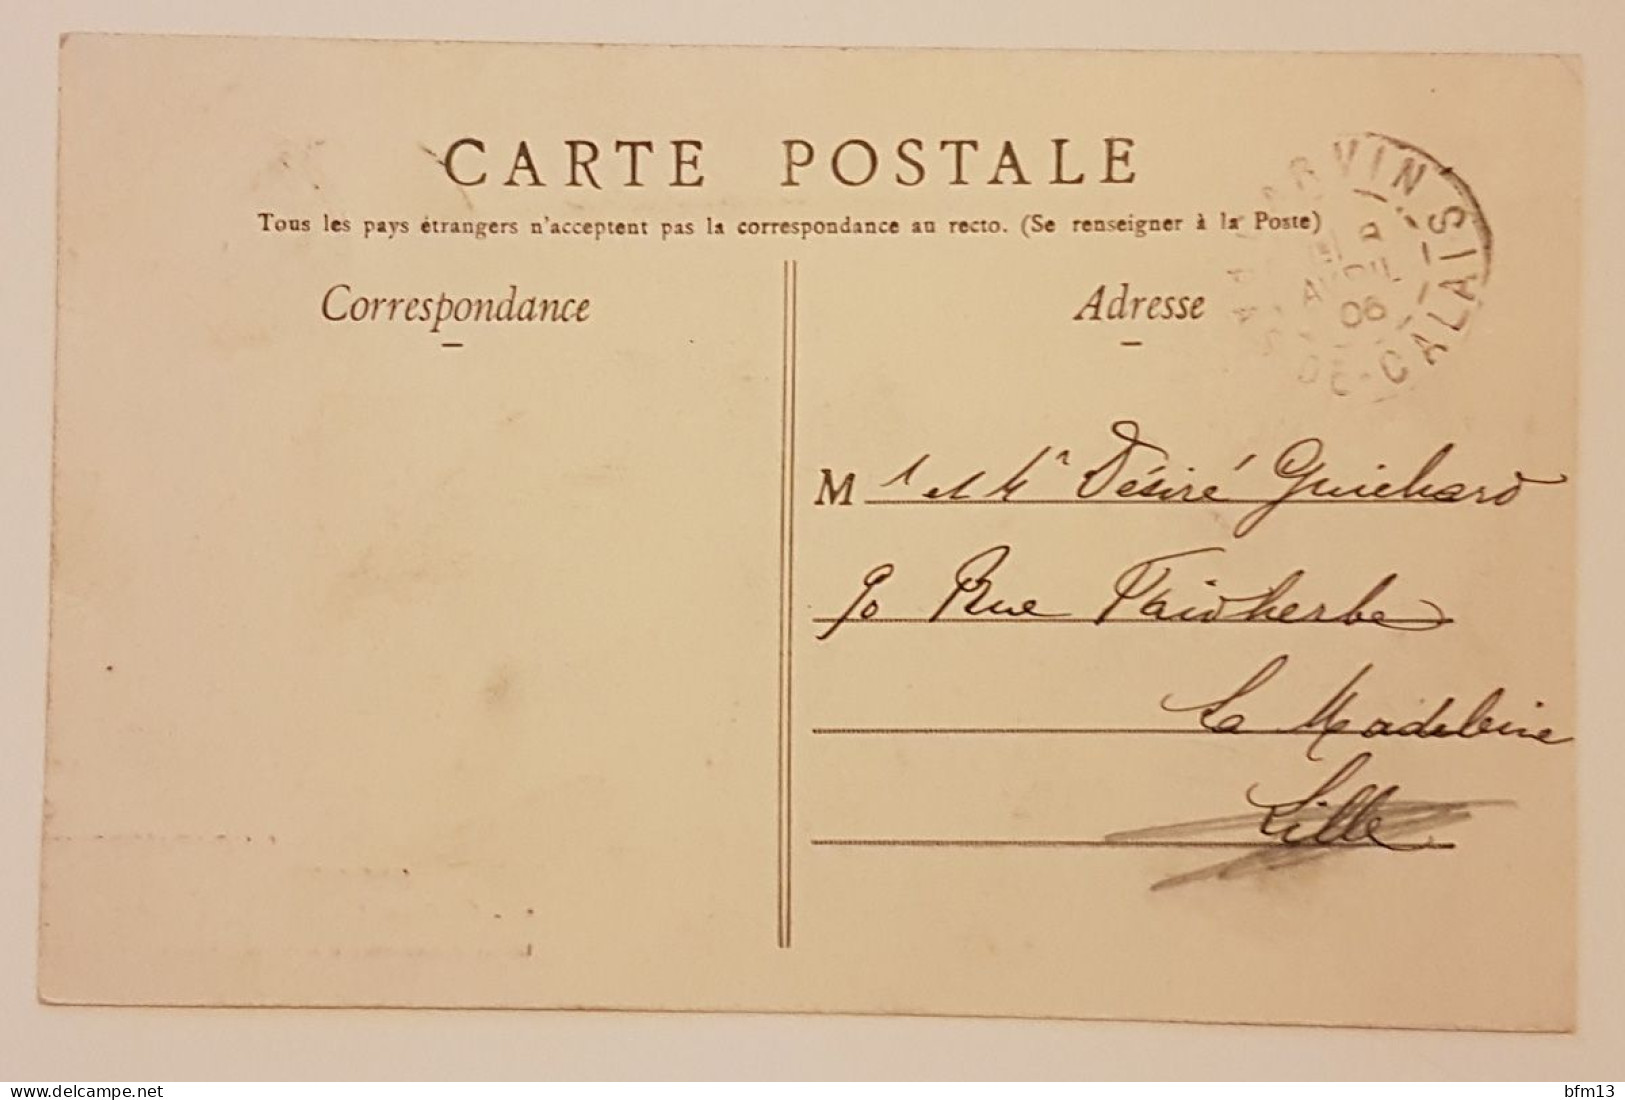 CARTE POSTALE
Tous les pays étrangers n'acceptent pas la correspondance au recto. (Se renseigner à la Poste)
Correspondance
Adresse
CARVIN
PAS-DE-CALAIS
AVRIL
06
M r et Me Désiré Guichard
90 Rue Faidherbe
La Madeleine
Lille
https://www.delcampe.net
bfm13